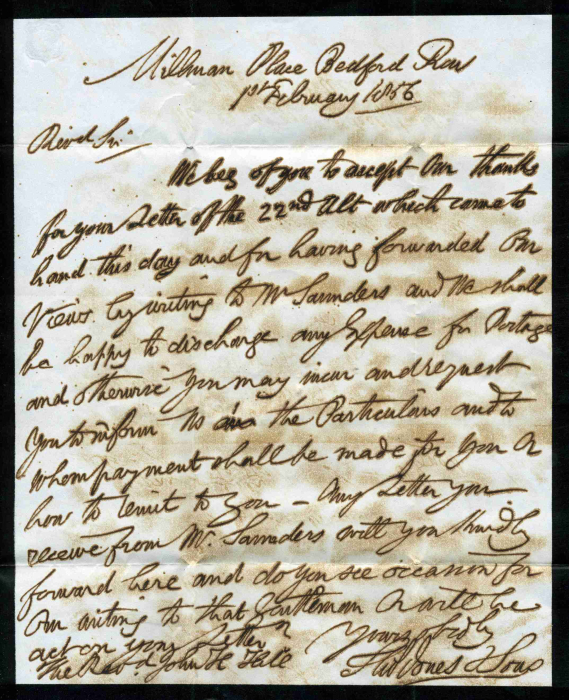 Millman Place Bedford Row
1st February 1856
Revd Sir
We beg of you to accept Our thanks
for your Letter of the 22nd Ult which came to
hand this day and for having forwarded Our
Views by writing to Mr Saunders and We shall
be happy to discharge any Expense for Postage
and otherwise you may incur and request
you to inform us the Particulars and to
whom payment shall be made for you Or
how to remit to you – Any Letter you
receive from Mr. Saunders will you kindly
forward here and do you see occasion for
Our writing to that Gentleman Or will he
act on your Letter
Yours
The Revd. John H Hale Jones & Sons